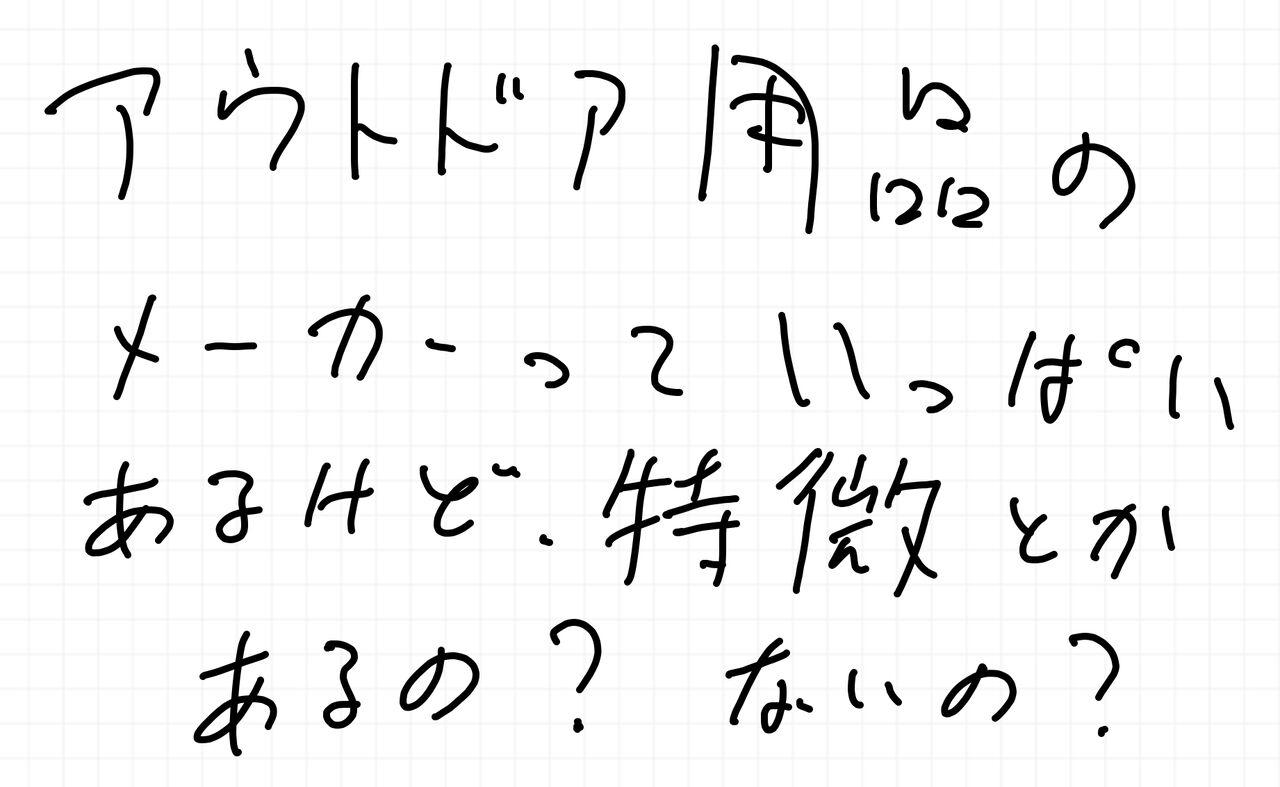 アウトドア用品の
メーカーっていっぱい
あるけど.特徴とか
あるの?ないの?